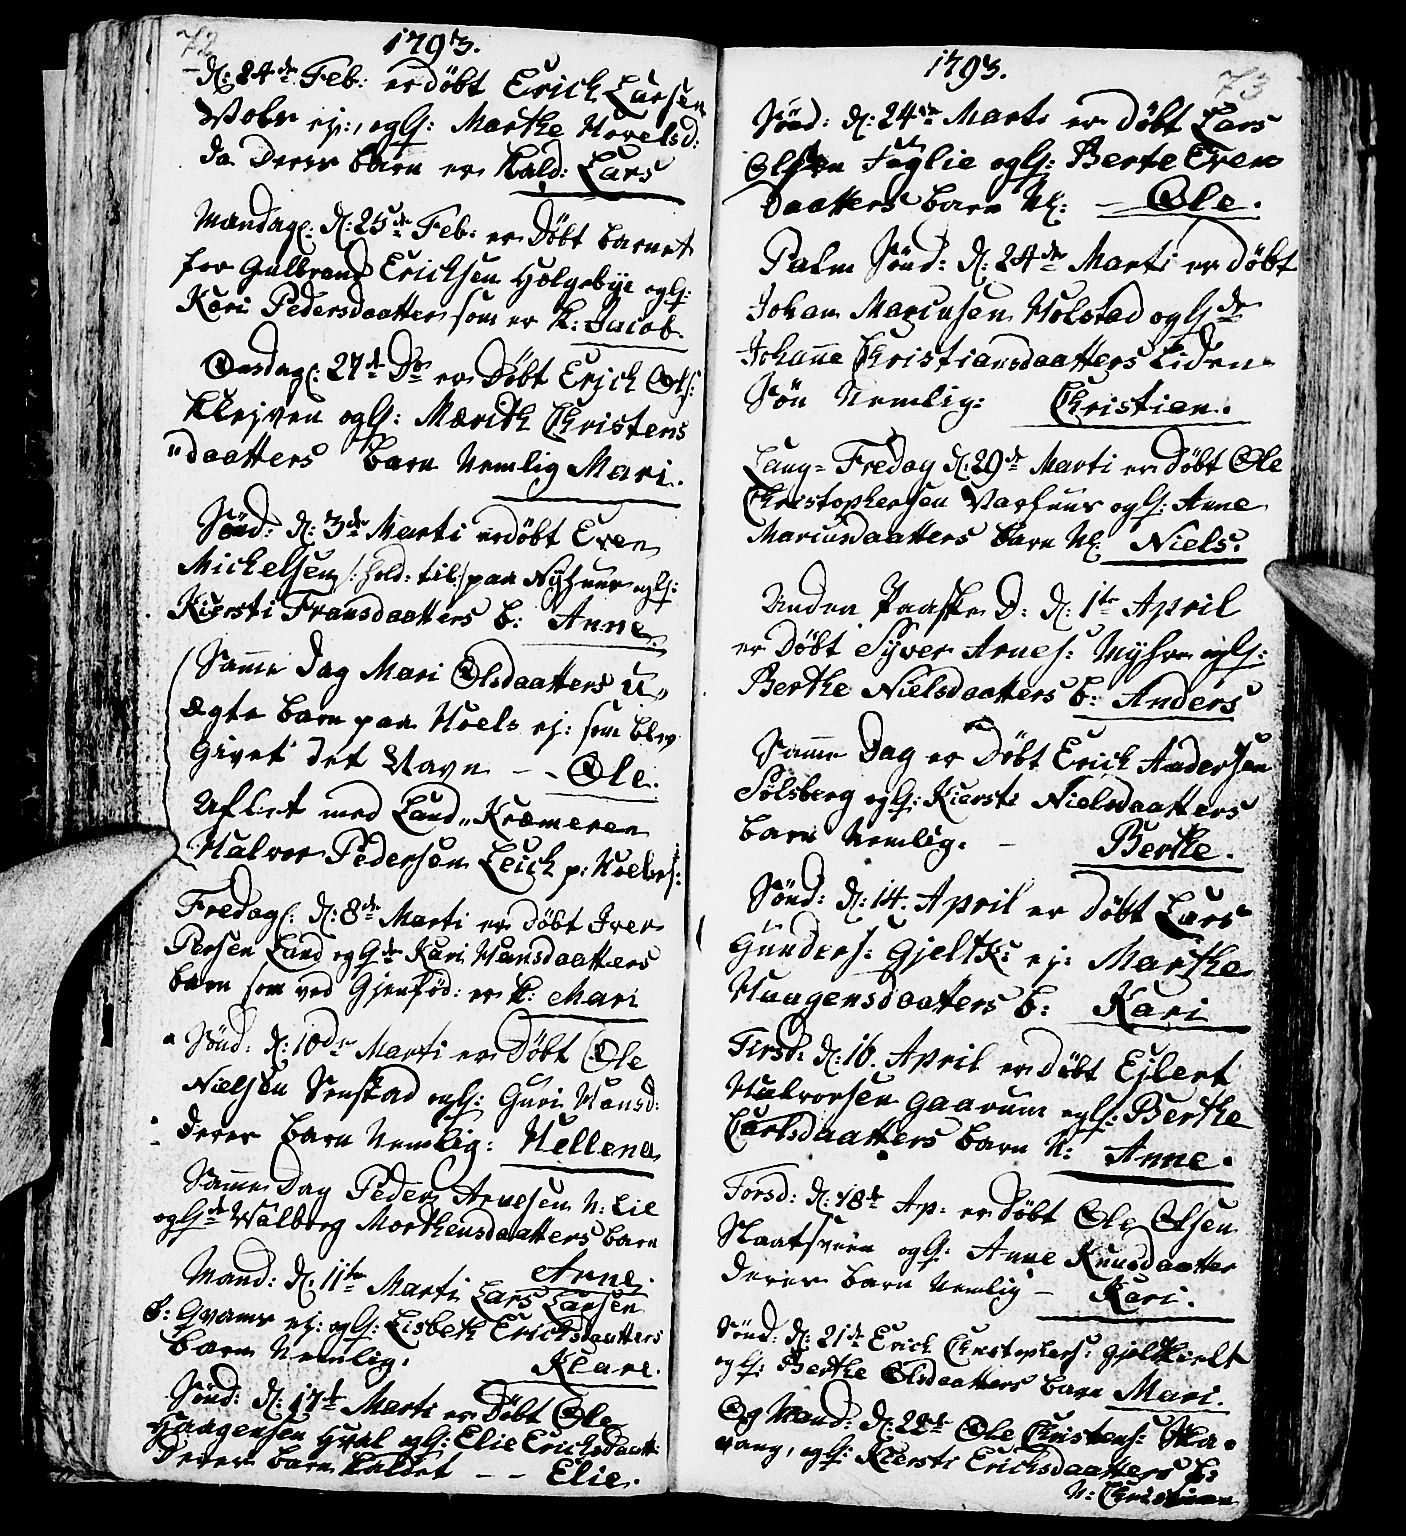 72
1793.
d: 24de Feb: er døbt Erich Larsen
Volr ej:, og H: Marthe Hovelsd:
da Deres barn er kald: Lars
Mandag: d: 25de Feb: er Døbt barnet
for Gulbrand Erichsen Holgebye og H:
Kari Pedersdaatter som er k: Jacob.
Onsdag: 27de Do er Døbt Erich Ols:
Klejven og H: Mærith Christens
daatters barn Nemlig Mari.
Sønd: d: 3de Marti er døbt Even
Michelsen /: hold: til:/ paa Nyhuus og H:
Kiersti Fransdaatters b: Anne.
Samme Dag Mari Olsdaatters U,,
ægte barn paa Hoels ej: som blev
Givet det Navn - - Ole.
Aflet med Land,, Kræmeren
Halvor Pedersen Leich p:
Fredag: d: 8de Marti er døbt Iver
Persen Land og H: Kari Hansdaatters
barn som ved Gjenfød: er k: Mari
Sønd: d: 10de Marti er Døbt Ole
Nielsen Senstad og H: Guri Hansd:
Deres barn Nemlig: Hellena
Samme Dag Peder Arnesen N: Lie
og H: Walborg Morthensdaatters barn
Arne.
Mand: d: 11te Marti Lars Larsen
S: Qvams ej: og H: Lisbeth Erichsdaatters
barn Nemlig: Klare.
Sønd: d: 17de Marti er Døbt Ole
Haagensen Hval og H: Elie Erichsdaatt:
Deres barn kaldet - - Elie.
1793.
73
Sønd: d: 24de Marti er døbt Lars
Olsen Fuglie og H: Berte Even
Daatters barn N: - Ole.
Palm Sønd: d: 24de Marti er døbt
Johan Mariusen Holstad og H:
Johanne Christiansdaatters Liden
Søn Nemlig: Christian.
Lang = Fredag d: 29de Marti er Døbt Ole
Christophersen Varhuus og H: Anne
Mariusdaatters barn N: Niels.
Anden Paaske D: d: 1te April
er Døbt Syver Arnes: Myhre og H:
Berthe Nielsdaatters b: Anders
Samme Dag er Døbt Erich Andersen
Sølsberg og H: Kiersti Nielsdaatters
barn Nemlig: - Berthe.
Sønd: d: 14. April er døbt Lars
Gunders: Gjeltk: ej: Marthe
Haagensdaatters b: Kari
Tirsd: d: 16. April er døbt Ejlert
Halvorsen Gaarum og H: Berthe
Carlsdaatters barn N: Anne.
Torsd: d: 18de Ap: er Døbt Ole Olsen
Staatsveen og H: Anne Knusdaatter
Deres barn Nemlig - Kari.
Sønd: d: 21de Erich Christophers: Gjeltkielt
og H: Berthe Olsdaatters barn Mari.
Og Mand: d: 22de Ole Christens: Wa=
vang, og H: Kiersti Erichsdaatters b: